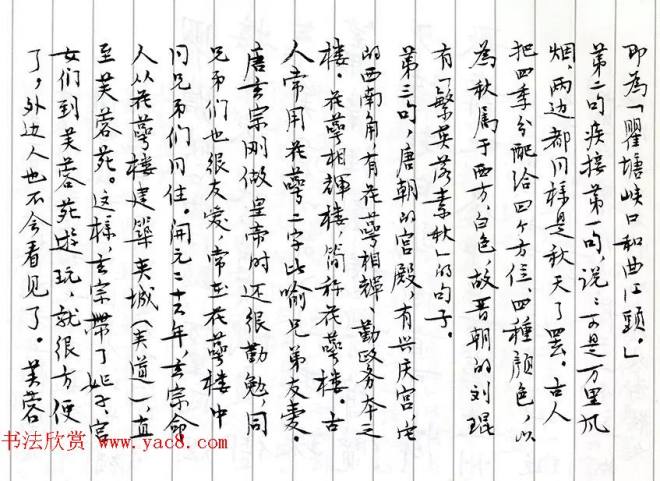 即為「瞿塘峽口和曲江頭。」
第二句疾接第一句，说：可是万里风
烟，两边都同樣是秋天了罢。古人
把四季分配给四个方位四種颜色，以
為秋属于西方，白色，故晋朝的刘琨
有「繁英落素秋」的句子。
第三句，唐朝的宫殿，有兴庆宫
的西南角，有花萼相輝、勤政务本之
楼。花萼相輝楼，简称花萼楼。古
人常用花萼二字比喻兄弟友爱。
唐玄宗刚做皇帝时还很勤勉，同
兄弟们也很友爱，常在花萼楼中
同兄弟们同住。開元二十年，玄宗命
人从花萼楼建築夹城（夹道）一直
至芙蓉苑。这样，玄宗带了妃子、宫
女们到芙蓉苑遊玩，就很方便
了，外边人也不会看见了。芙蓉
书法欣赏 www.yac8.com